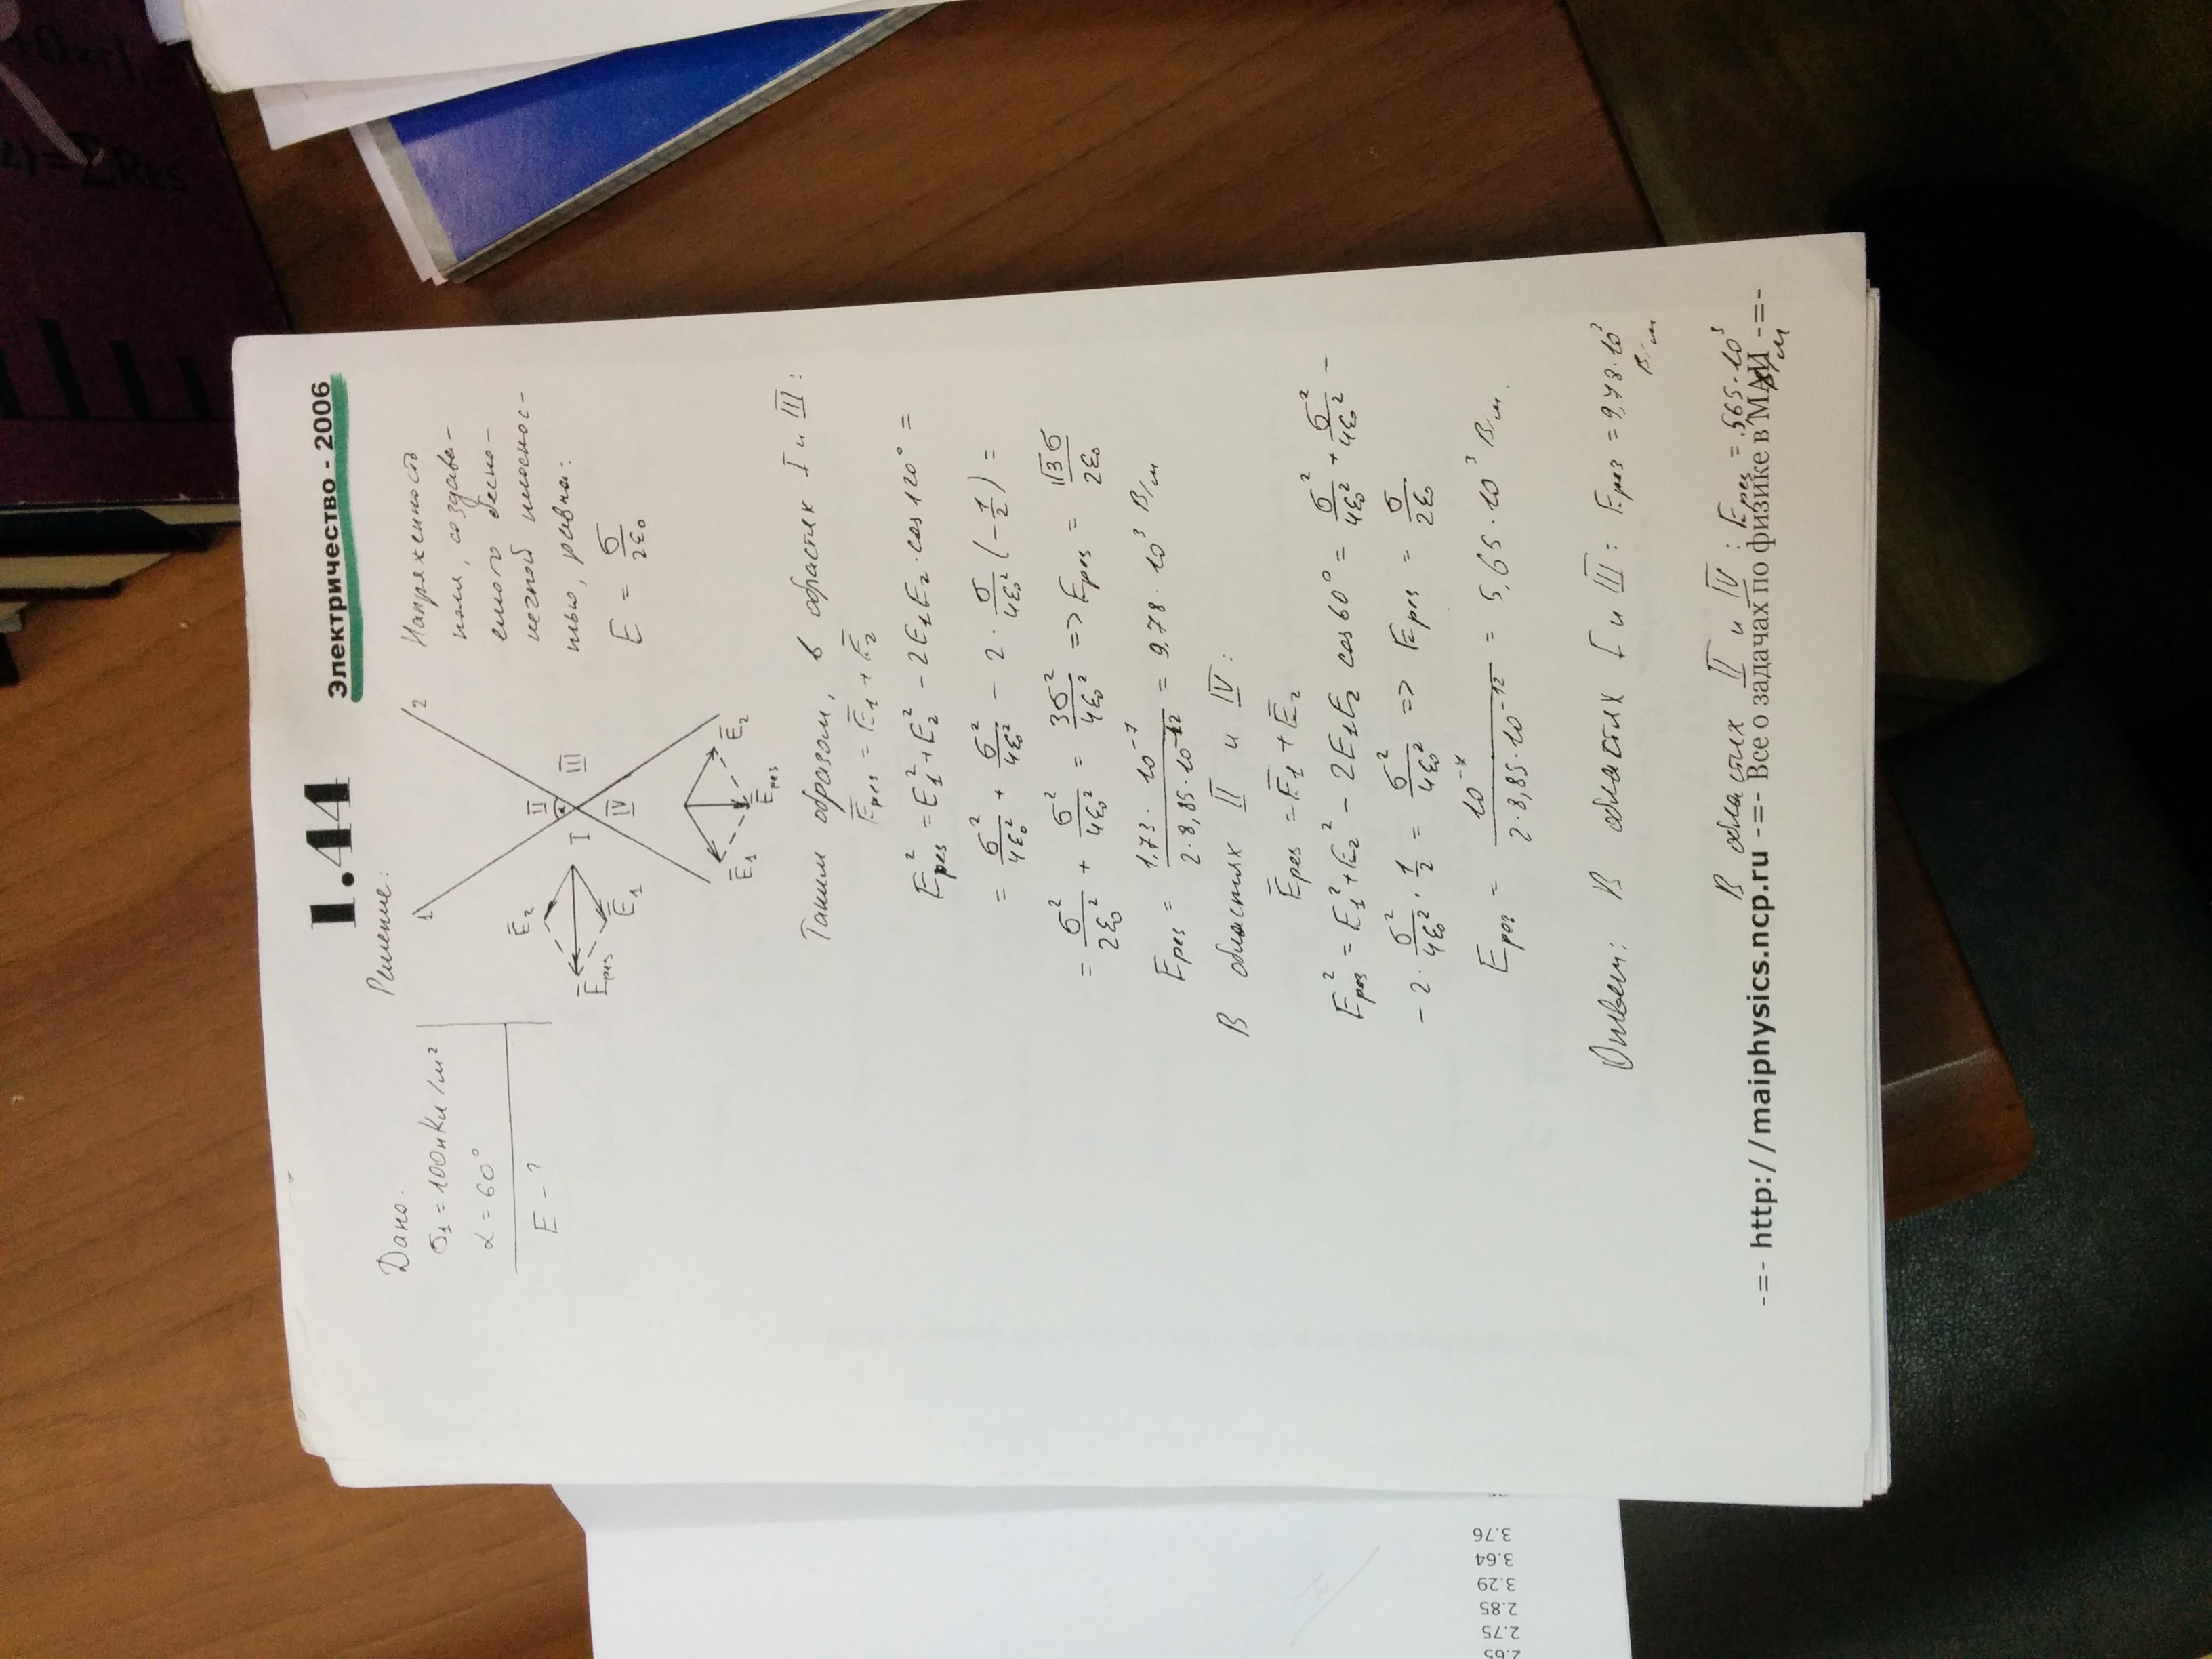 1.44
Электричество - 2006
Дано:
σ₁ = 100 нКл/м²
α = 60°
E - ?
Решение:
1
2
I
II
III
IV
E̅₂
E̅₁
E̅рез
E̅₁
E̅₂
E̅рез
Напряженность
поля, создава-
емого беско-
нечной плоскос-
тью, равна:
E = σ/2ε₀
Таким образом, в областях I и III:
E̅рез = E̅₁ + E̅₂
E²рез = E₁² + E₂² - 2E₁E₂·cos120° =
= σ²/4ε₀² + σ²/4ε₀² - 2·σ/4ε₀²(-1/2) =
= σ²/2ε₀² + σ²/4ε₀² = 3σ²/4ε₀² => Eрез = √3σ/2ε₀
Eрез = 1,73·10⁻⁷/2·8,85·10⁻¹² = 9,78·10³ В/м
В областях II и IV:
E̅рез = E̅₁ + E̅₂
E²рез = E₁² + E₂² - 2E₁E₂ cos60° = σ²/4ε₀² + σ²/4ε₀² -
- 2·σ²/4ε₀²·1/2 = σ²/4ε₀² => Eрез = σ/2ε₀
Eрез = 10⁻⁷/2·8,85·10⁻¹² = 5,65·10³ В/м.
Ответ: В областях I и III: Eрез = 9,78·10³ В/м
В областях II и IV: Eрез = 5,65·10³ В/м
-=- http://maiphysics.ncp.ru -=- Все о задачах по физике в МАИ -=-
2.65
2.75
2.85
3.29
3.64
3.76